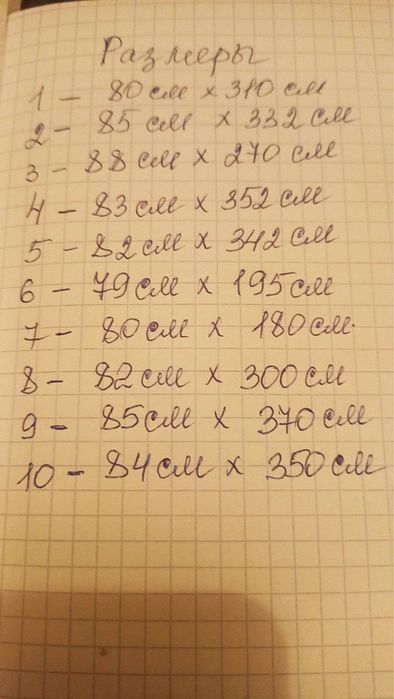 Размеры
1 - 80 см х 310 см
2 - 85 см х 332 см
3 - 88 см х 270 см
4 - 83 см х 352 см
5 - 82 см х 342 см
6 - 79 см х 195 см
7 - 80 см х 180 см.
8 - 82 см х 300 см
9 - 85 см х 370 см
10 - 84 см х 350 см